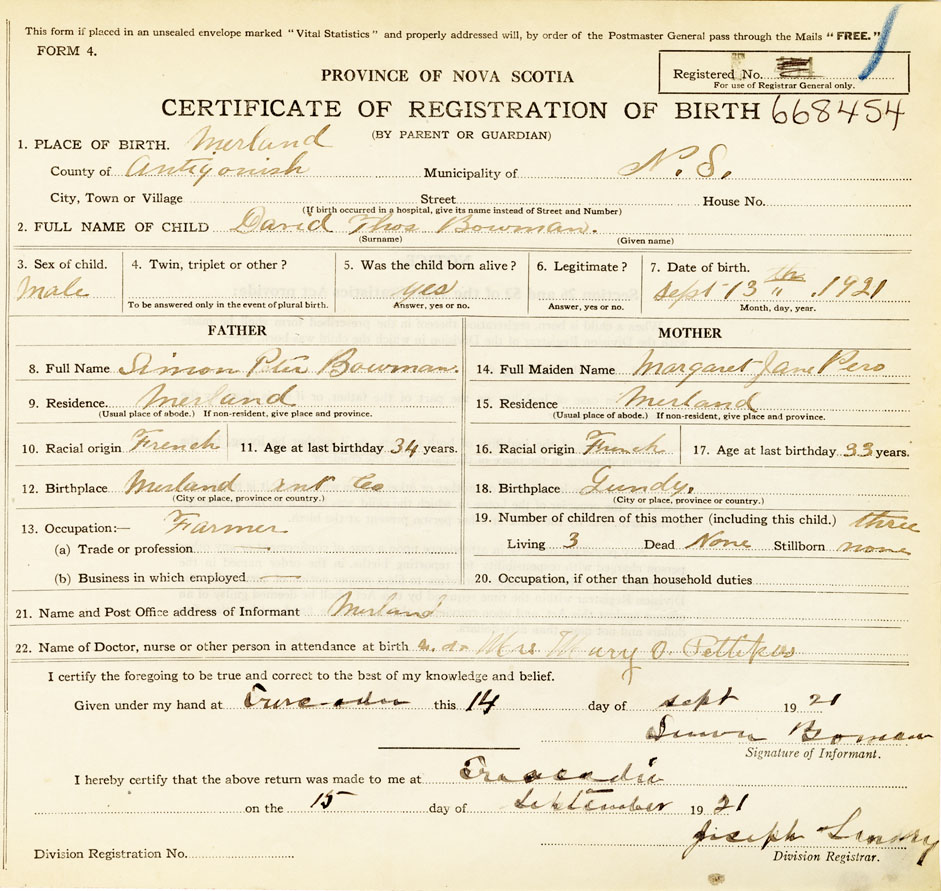 This form if placed in an unsealed envelope marked "Vital Statistics" and properly addressed will, by order of the Postmaster General pass through the Mails "FREE."
FORM 4.
PROVINCE OF NOVA SCOTIA
Registered No.
For use of Registrar General only.
CERTIFICATE OF REGISTRATION OF BIRTH 668454
(BY PARENT OR GUARDIAN)
1. PLACE OF BIRTH. Merland
County of Antigonish Municipality of N. S.
City, Town or Village Street House No.
(If birth occurred in a hospital, give its name instead of Street and Number)
2. FULL NAME OF CHILD David Thos Bowman.
(Surname) (Given name)
3. Sex of child. 4. Twin, triplet or other? 5. Was the child born alive? 6. Legitimate? 7. Date of birth.
Male yes Sept 13th " . 1921
To be answered only in the event of plural birth. Answer, yes or no. Answer, yes or no. Month, day, year.
FATHER MOTHER
8. Full Name Simon Peter Bowman. 14. Full Maiden Name Margaret Jane Pero
9. Residence. Merland 15. Residence Merland
(Usual place of abode.) If non-resident, give place and province. (Usual place of abode.) If non-resident, give place and province.
10. Racial origin French 11. Age at last birthday 34 years. 16. Racial origin French 17. Age at last birthday 33 years.
12. Birthplace Merland ant Co 18. Birthplace Lundy.
(City or place, province or country.) (City or place, province or country.)
13. Occupation:— Farmer 19. Number of children of this mother (including this child.) three
(a) Trade or profession — Living 3 Dead None Stillborn none
(b) Business in which employed — 20. Occupation, if other than household duties
21. Name and Post Office address of Informant Merland
22. Name of Doctor, nurse or other person in attendance at birth Mrs Mary O. Pettipas
I certify the foregoing to be true and correct to the best of my knowledge and belief.
Given under my hand at this 14 day of sept 1921
Simon Boman
Signature of Informant.
I hereby certify that the above return was made to me at Tracadie
on the 15 day of September 1921
Joseph Landry
Division Registrar.
Division Registration No.